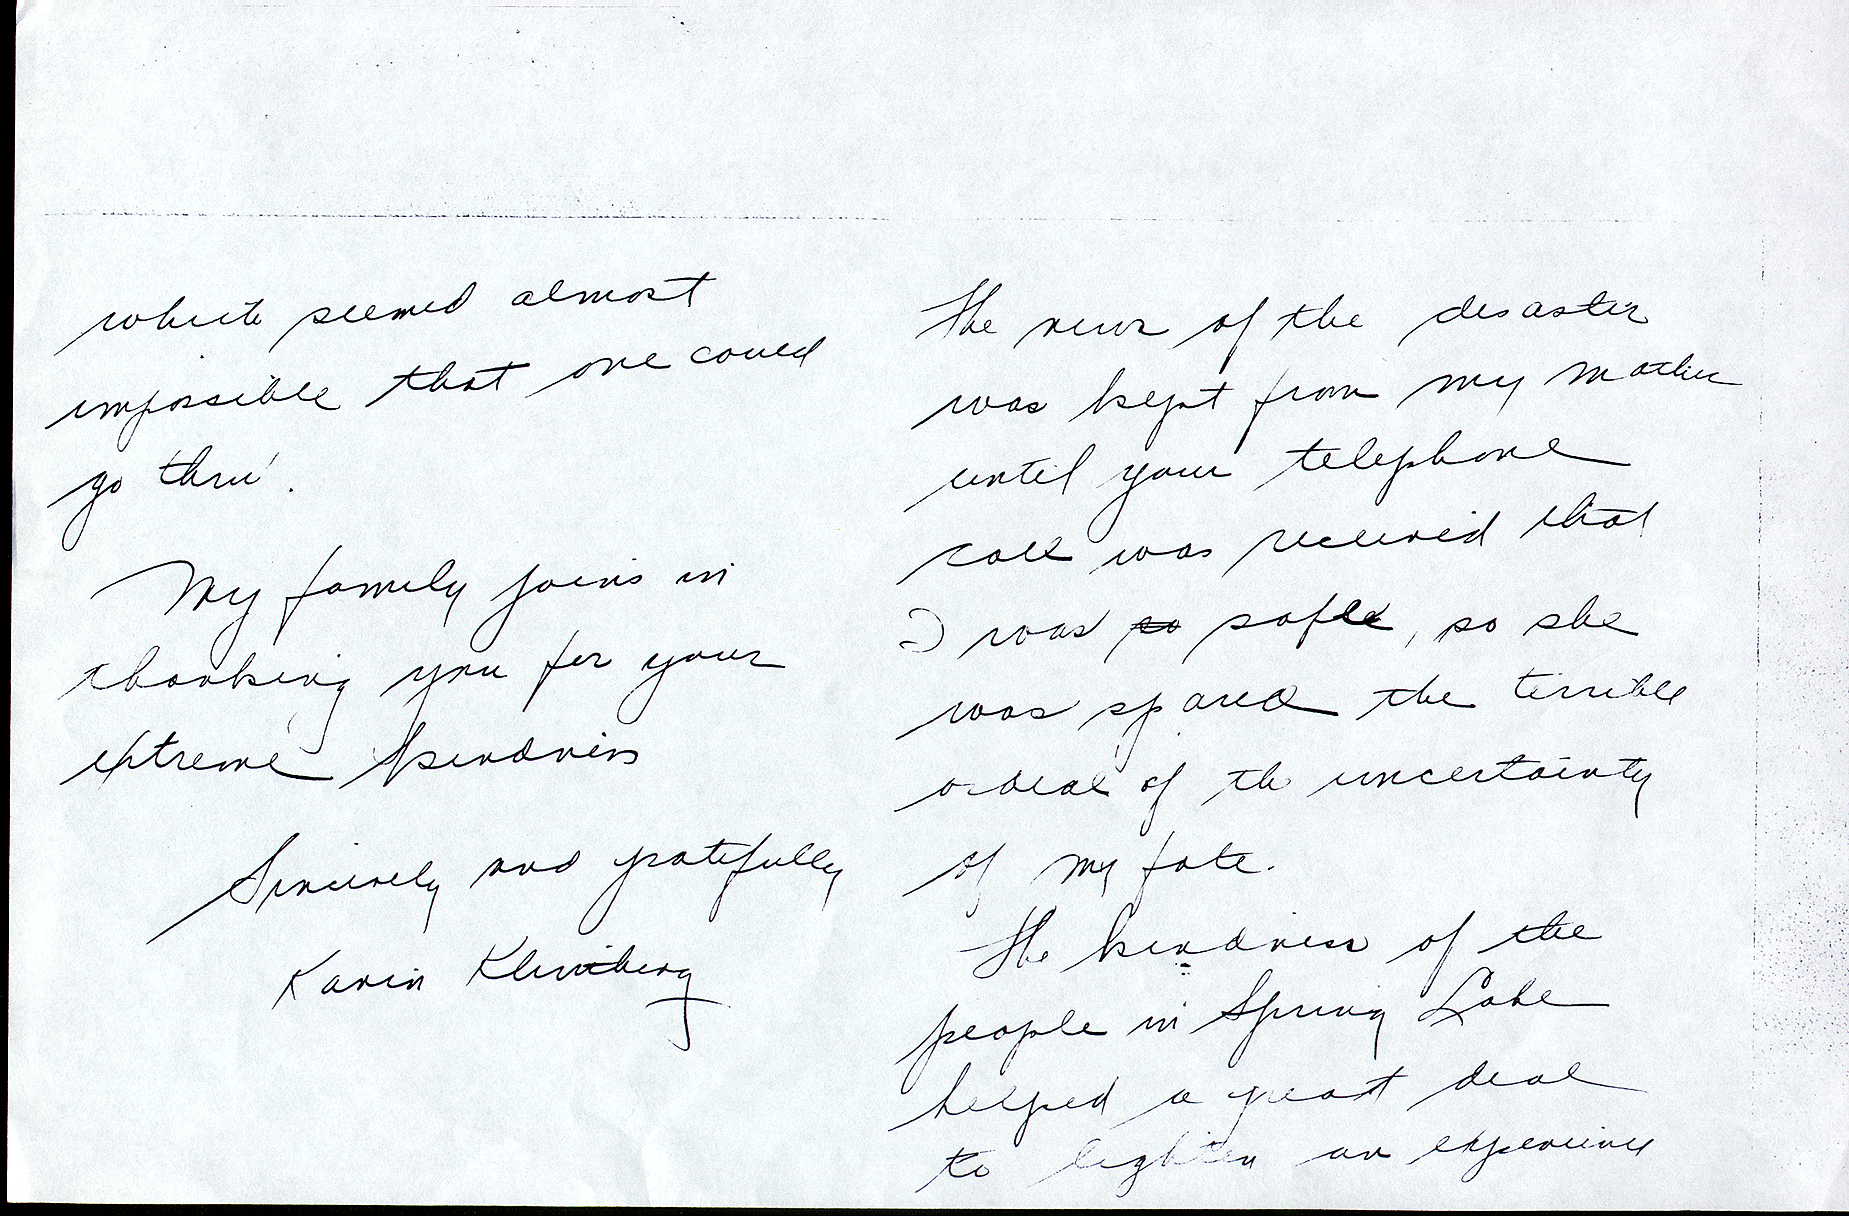 The news of the disaster
was kept from my mother
until your telephone
call was received that
I was so safe, so she
was spared the terrible
ordeal of the uncertainty
of my fate.
The kindness of the
people in Spring Lake
helped a great deal
to lighten an experience
which seemed almost
impossible that one could
go thru'.
My family joins in
thanking you for your
extreme kindness
Sincerely and gratefully
Karin